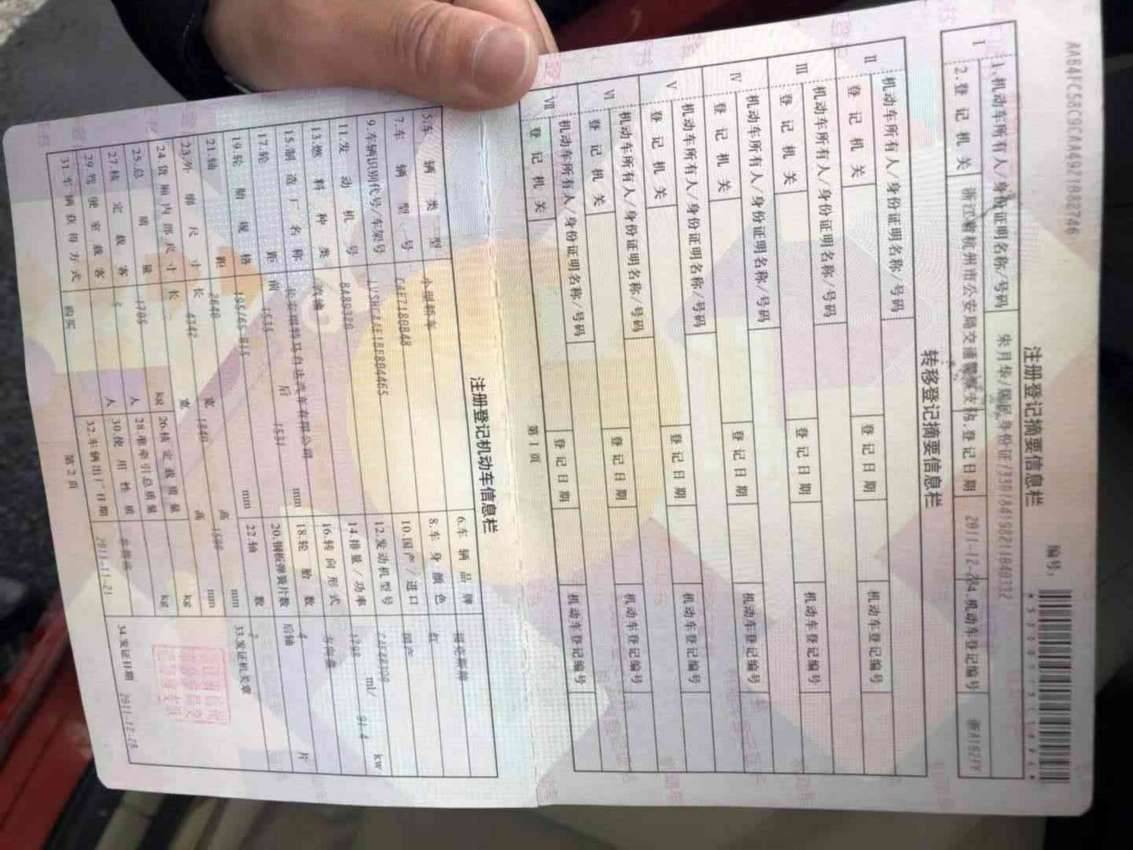 注册登记摘要信息栏
编号:
Ⅰ 1.机动车所有人/身份证明名称/号码
2.登记机关 浙江省杭州市公安局交通警察支队 3.登记日期 2011-12- 4.机动车登记编号 浙A162FY
转移登记摘要信息栏
Ⅱ 机动车所有人/身份证明名称/号码
登记机关 登记日期 机动车登记编号
Ⅲ 机动车所有人/身份证明名称/号码
登记机关 登记日期 机动车登记编号
Ⅳ 机动车所有人/身份证明名称/号码
登记机关 登记日期 机动车登记编号
Ⅴ 机动车所有人/身份证明名称/号码
登记机关 登记日期 机动车登记编号
Ⅵ 机动车所有人/身份证明名称/号码
登记机关 登记日期 机动车登记编号
Ⅶ 机动车所有人/身份证明名称/号码
登记机关 登记日期 机动车登记编号
第1页
注册登记机动车信息栏
5.车辆类型 小型轿车 6.车辆品牌 福克斯牌
7.车辆型号 8.车身颜色 红
9.车辆识别代号/车架号 10.国产/进口 国产
11.发动机号 12.发动机型号
13.燃料种类 汽油 14.排量/功率 1798 ml/ 91.4 kw
15.制造厂名称 长安福特马自达汽车有限公司 16.转向形式 方向盘
17.轮距 前 后 1531 mm 18.轮胎数 4
19.轮胎规格 195/65 R15 20.钢板弹簧片数 后轴 片
21.轴距 2640 mm 22.轴数 2
23.外廓尺寸 长 4342 宽 1840 高 1500 mm 33.发证机关章
24.货厢内部尺寸 长 宽 高 mm
25.总质量 1705 kg 26.核定载质量 kg
27.核定载客 5 人 28.准牵引总质量 kg
29.驾驶室载客 人 30.使用性质 非营运
31.车辆获得方式 购买 32.车辆出厂日期 2011-11-21 34.发证日期
第2页